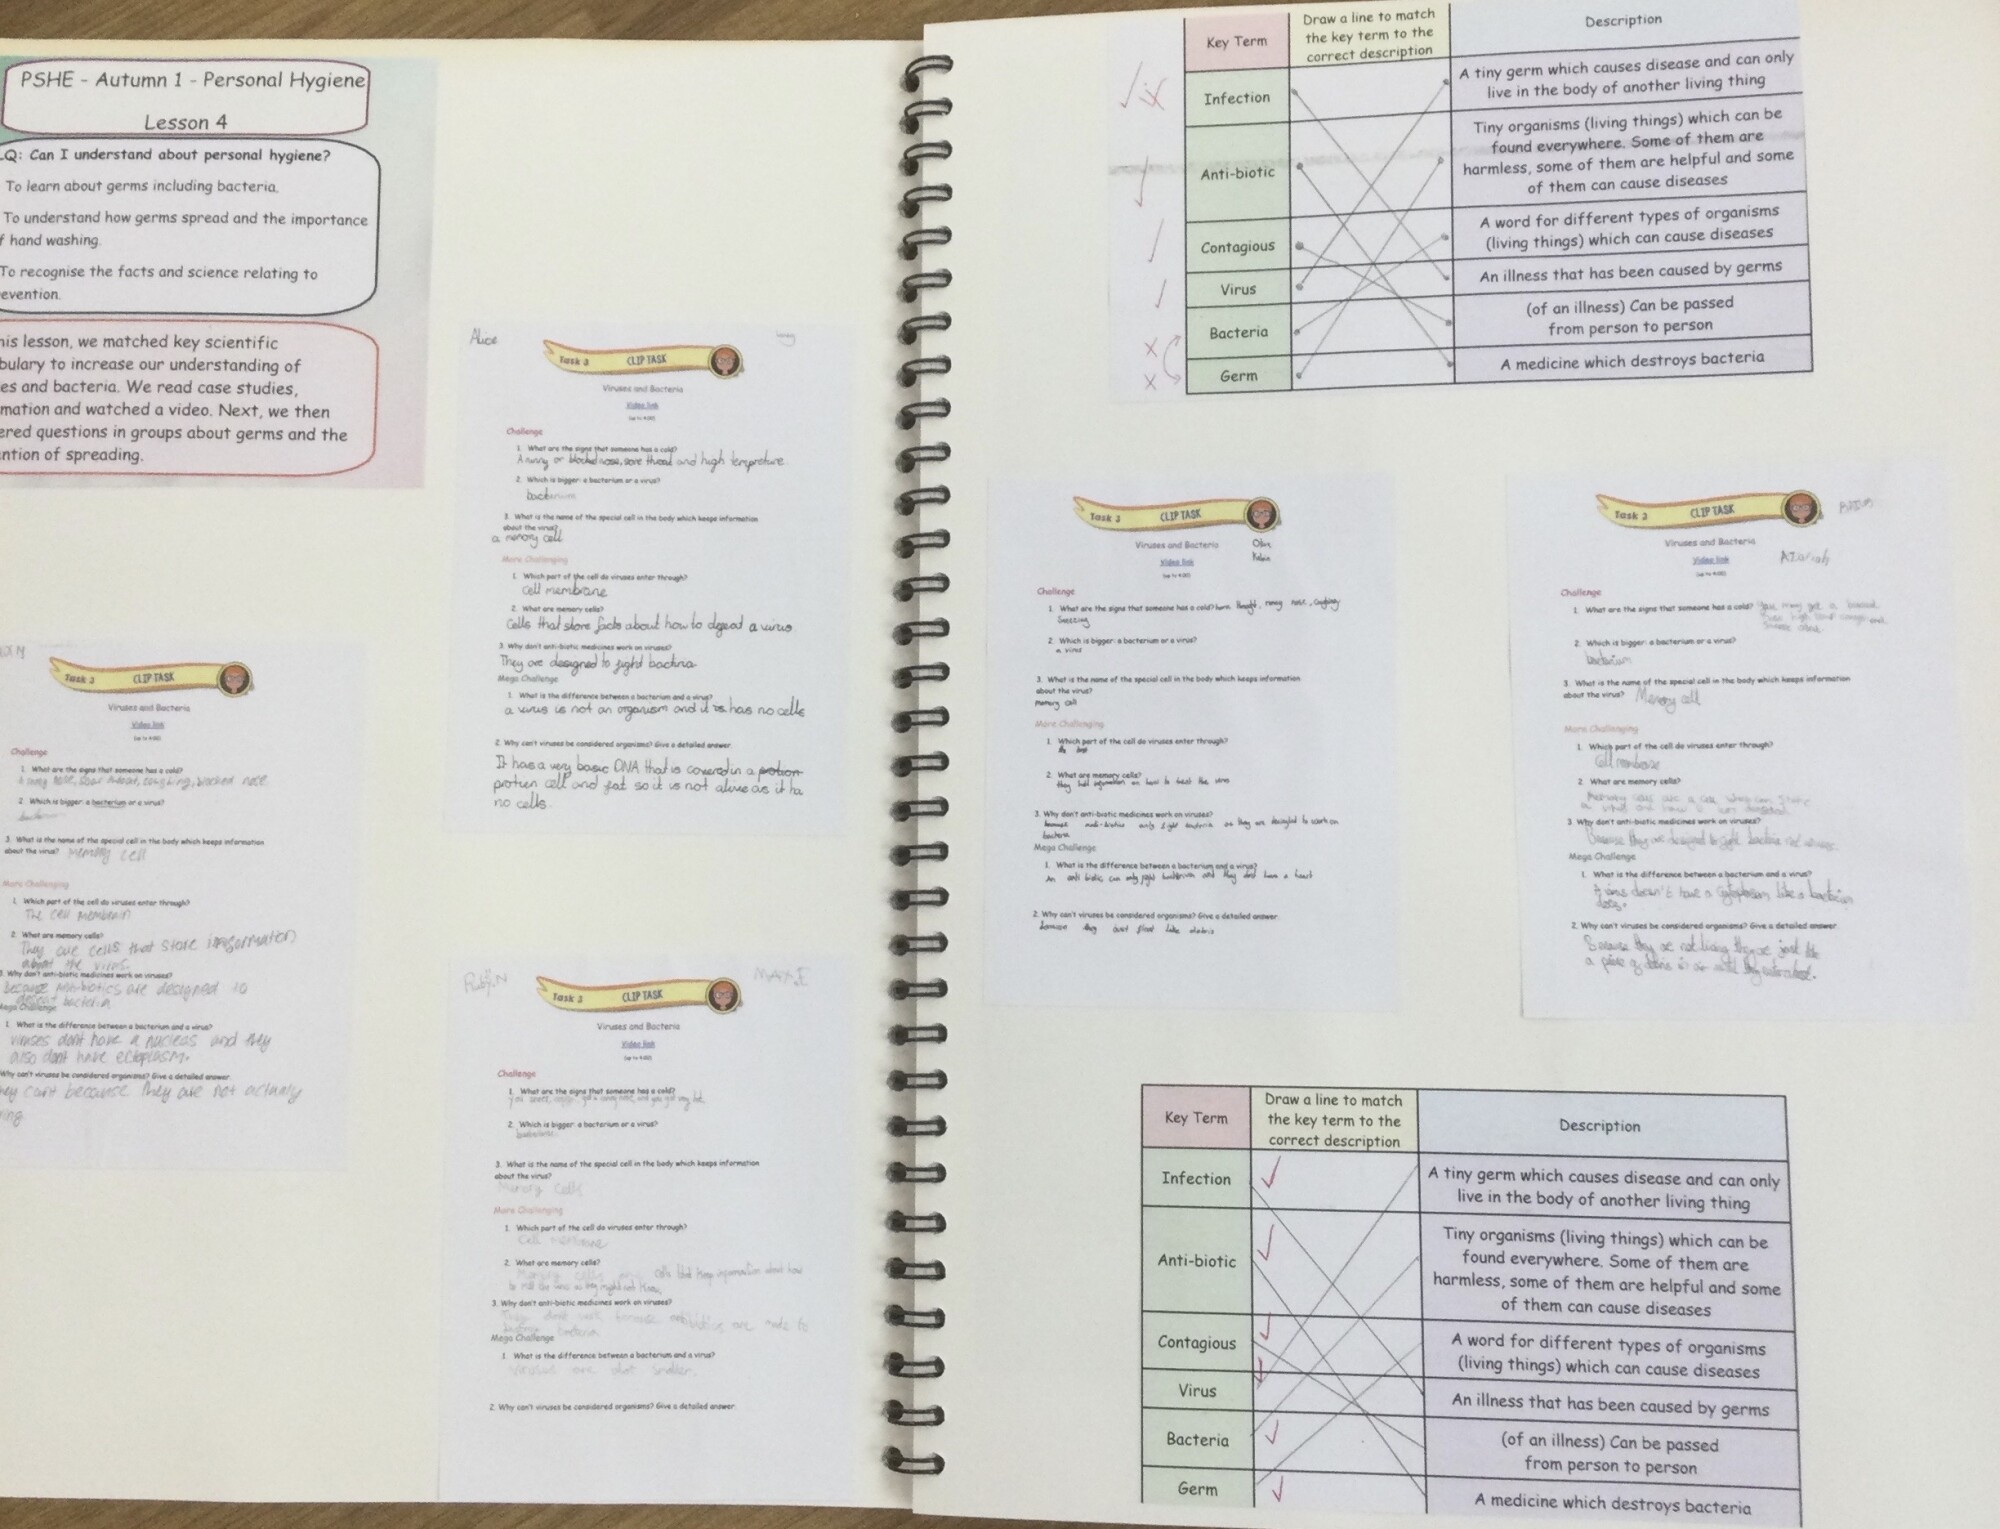 PSHE - Autumn 1 - Personal Hygiene
Lesson 4
Q: Can I understand about personal hygiene?
To learn about germs including bacteria.
To understand how germs spread and the importance
hand washing.
To recognise the facts and science relating to
evention.
his lesson, we matched key scientific
bulary to increase our understanding of
es and bacteria. We read case studies,
mation and watched a video. Next, we then
ered questions in groups about germs and the
ntion of spreading.
Task 3 CLIP TASK
Viruses and Bacteria
Video link
(up to 4:00)
Challenge
1. What are the signs that someone has a cold?
nose, coughing, blocked nose.
2. Which is bigger: a bacterium or a virus?
3. What is the name of the special cell in the body which keeps information
about the virus? Memory cell
More Challenging
1. Which part of the cell do viruses enter through?
The cell membrain
2. What are memory cells?
They are cells that store information
about the virus.
3. Why don't anti-biotic medicines work on viruses?
because antibiotics are designed to
defeat bacteria
Mega Challenge
1. What is the difference between a bacterium and a virus?
viruses dont have a nucleus and they
also dont have ectoplasm.
Why can't viruses be considered organisms? Give a detailed answer.
hey can't because they are not actually
Alice
Task 3 CLIP TASK
Viruses and Bacteria
Video link
(up to 4:00)
Challenge
1. What are the signs that someone has a cold?
A runny or blocked nose, sore throat and high temprature
2. Which is bigger: a bacterium or a virus?
bacterium
3. What is the name of the special cell in the body which keeps information
about the virus?
a memory cell
More Challenging
1. Which part of the cell do viruses enter through?
cell membrane
2. What are memory cells?
Cells that store facts about how to a virus
3. Why don't anti-biotic medicines work on viruses?
They are designed to fight bactiria
Mega Challenge
1. What is the difference between a bacterium and a virus?
a virus is not an organism and it has no cells
2. Why can't viruses be considered organisms? Give a detailed answer.
It has a very basic DNA that is covered in a
protien cell and fat so it is not alive as it ha
no cells.
MAXI
Task 3 CLIP TASK
Viruses and Bacteria
Video link
(up to 4:00)
Challenge
1. What are the signs that someone has a cold?
2. Which is bigger: a bacterium or a virus?
3. What is the name of the special cell in the body which keeps information
about the virus?
Memory cells
More Challenging
1. Which part of the cell do viruses enter through?
Cell membrane
2. What are memory cells?
Memory cells are cells that keep information about how
3. Why don't anti-biotic medicines work on viruses?
They dont work because antibiotics are made to
bacteria
Mega Challenge
1. What is the difference between a bacterium and a virus?
Viruses are alot smaller.
2. Why can't viruses be considered organisms? Give a detailed answer.
Key Term
Draw a line to match
the key term to the
correct description
Description
Infection
Anti-biotic
Contagious
Virus
Bacteria
Germ
A tiny germ which causes disease and can only
live in the body of another living thing
Tiny organisms (living things) which can be
found everywhere. Some of them are
harmless, some of them are helpful and some
of them can cause diseases
A word for different types of organisms
(living things) which can cause diseases
An illness that has been caused by germs
(of an illness) Can be passed
from person to person
A medicine which destroys bacteria
Task 3 CLIP TASK
Viruses and Bacteria
Video link
(up to 4:00)
Challenge
1. What are the signs that someone has a cold? runny nose, coughing
Sneezing
2. Which is bigger: a bacterium or a virus?
a virus
3. What is the name of the special cell in the body which keeps information
about the virus?
Memory cell
More Challenging
1. Which part of the cell do viruses enter through?
2. What are memory cells?
they hold information on how to the virus
3. Why don't anti-biotic medicines work on viruses?
because anti-biotics only fight bacteria as they are to work on
bacteria
Mega Challenge
1. What is the difference between a bacterium and a virus?
An anti biotic can only fight and they dont have a heart
2. Why can't viruses be considered organisms? Give a detailed answer.
they just float like debris
Azariah
Task 3 CLIP TASK
Viruses and Bacteria
Video link
(up to 4:00)
Challenge
1. What are the signs that someone has a cold? You may get a
2. Which is bigger: a bacterium or a virus?
bacterium
3. What is the name of the special cell in the body which keeps information
about the virus? Memory cell
More Challenging
1. Which part of the cell do viruses enter through?
Cell membrane
2. What are memory cells?
Memory cells are a cell which can store
3. Why don't anti-biotic medicines work on viruses?
Because they are designed to fight bacteria not viruses.
Mega Challenge
1. What is the difference between a bacterium and a virus?
A virus doesn't have a cytoplasm like a bacterium
does.
2. Why can't viruses be considered organisms? Give a detailed answer.
Because they are not living they are just like
a piece of debris
Key Term
Draw a line to match
the key term to the
correct description
Description
Infection
Anti-biotic
Contagious
Virus
Bacteria
Germ
A tiny germ which causes disease and can only
live in the body of another living thing
Tiny organisms (living things) which can be
found everywhere. Some of them are
harmless, some of them are helpful and some
of them can cause diseases
A word for different types of organisms
(living things) which can cause diseases
An illness that has been caused by germs
(of an illness) Can be passed
from person to person
A medicine which destroys bacteria